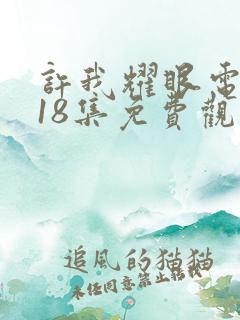 許我耀眼電
18集免費觀
追風的猫猫
未任同意禁止轉載